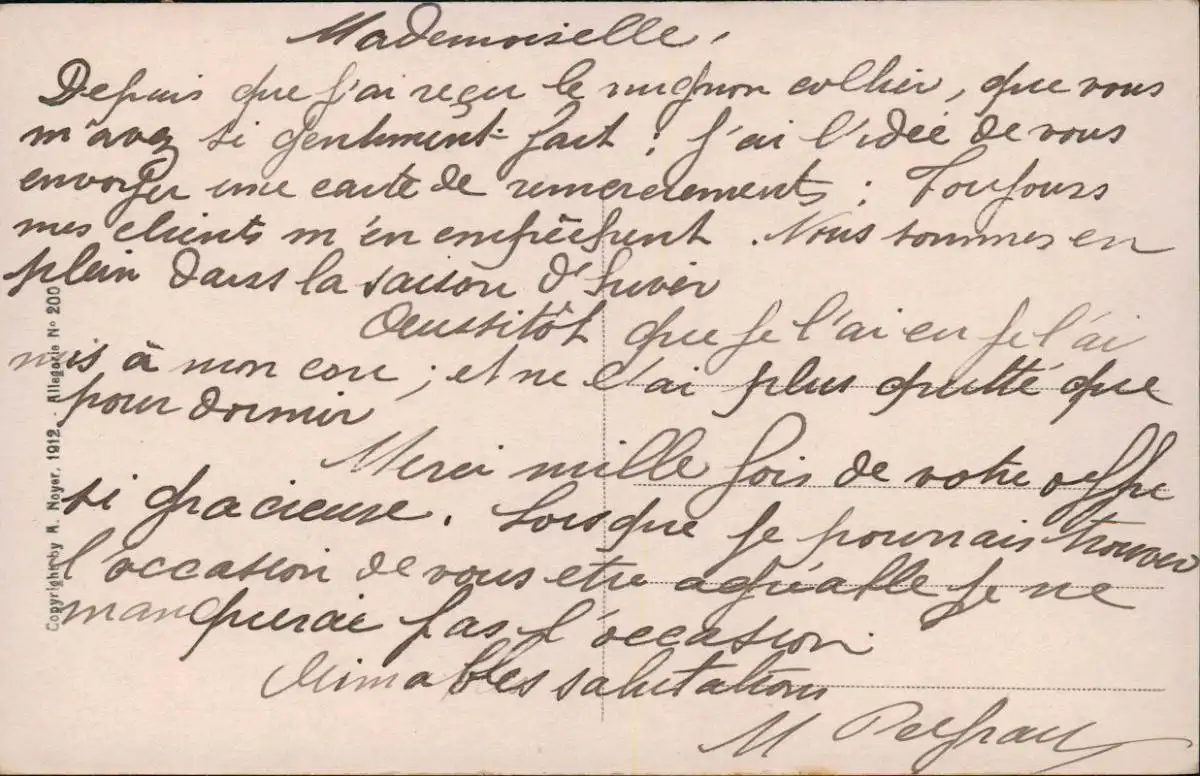 Mademoiselle,
Depuis que j'ai reçu le mignon collier, que vous
m'avez si gentiment fait : j'ai l'idée de vous
envoyer une carte de remerciements : Toujours
mes clients m'en empêchent. Nous sommes en
plein dans la saison d'hiver
Aussitôt que je l'ai eu je l'ai
mis à mon cou ; et ne l'ai plus quitté que
pour dormir
Merci mille fois de votre offre
si gracieuse. Lorsque je pourrais trouver
l'occasion de vous etre agréable je ne
manquerai pas l'occasion.
Aimables salutations
M
Copyright by M. Noyer, 1912. - Allegorie No 200